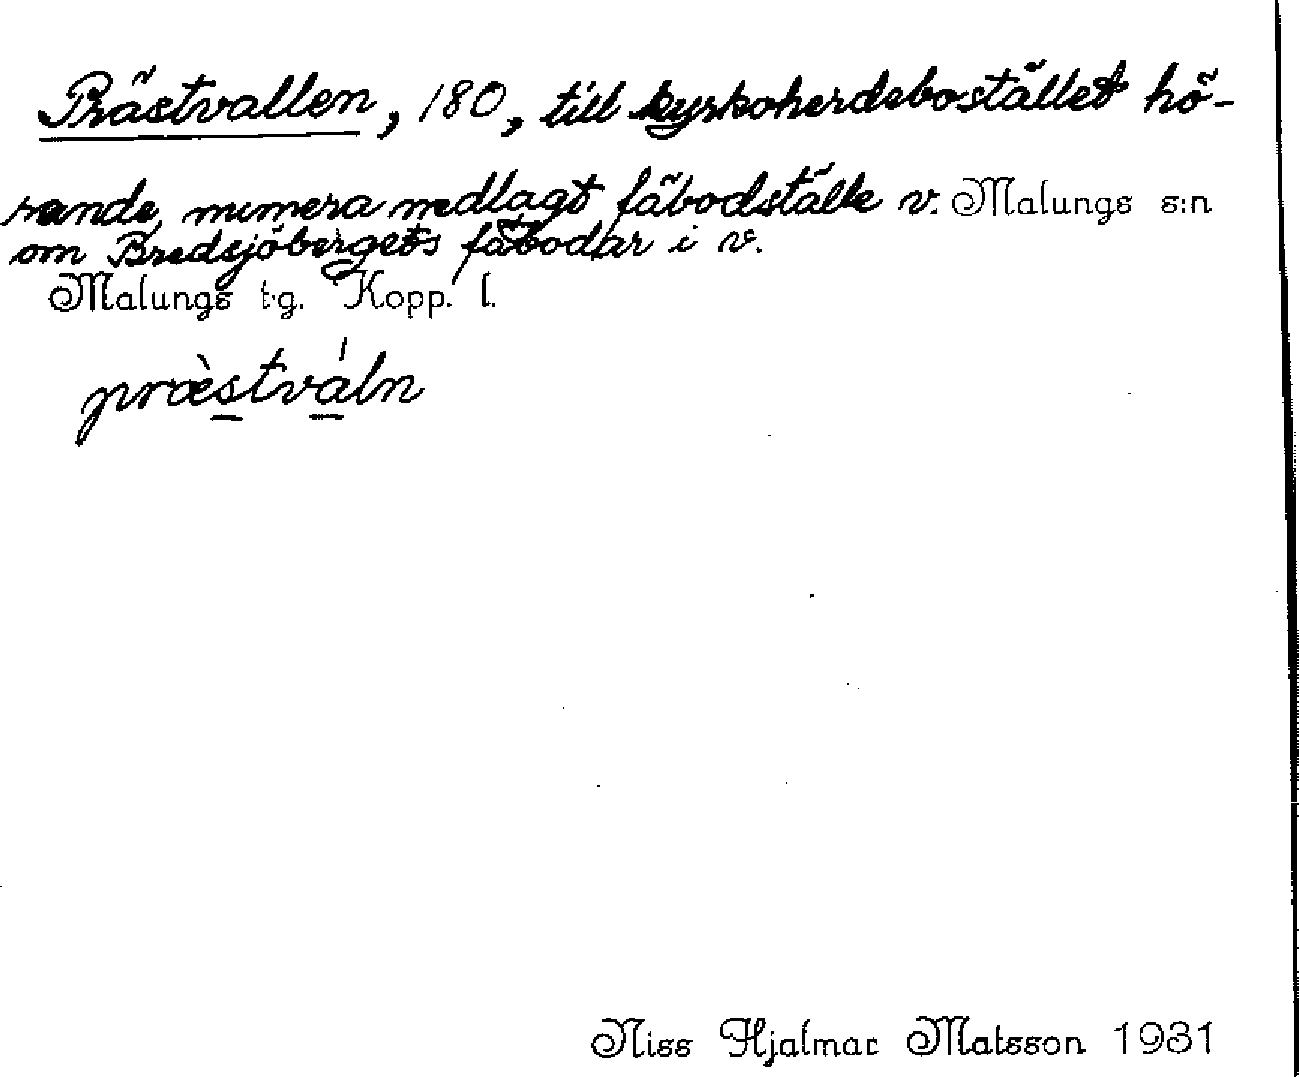 Prästvallen, 180, till kyrkoherdebostället hö-
rande, numera nedlagt fäbodställe v. Malungs s:n
om Bredsjöbergets fäbodar i v.
Malungs t.g. Kopp. l.
præ̀stváln
Niss Hjalmar Matsson 1931